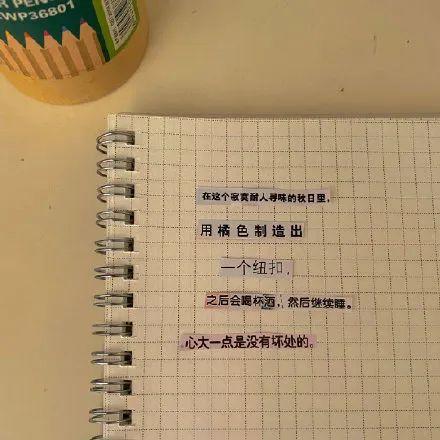 R PEN
WP36801
在这个寂寞耐人寻味的秋日里，
用橘色制造出
一个纽扣，
之后会喝杯酒，然后继续睡。
心大一点是没有坏处的。